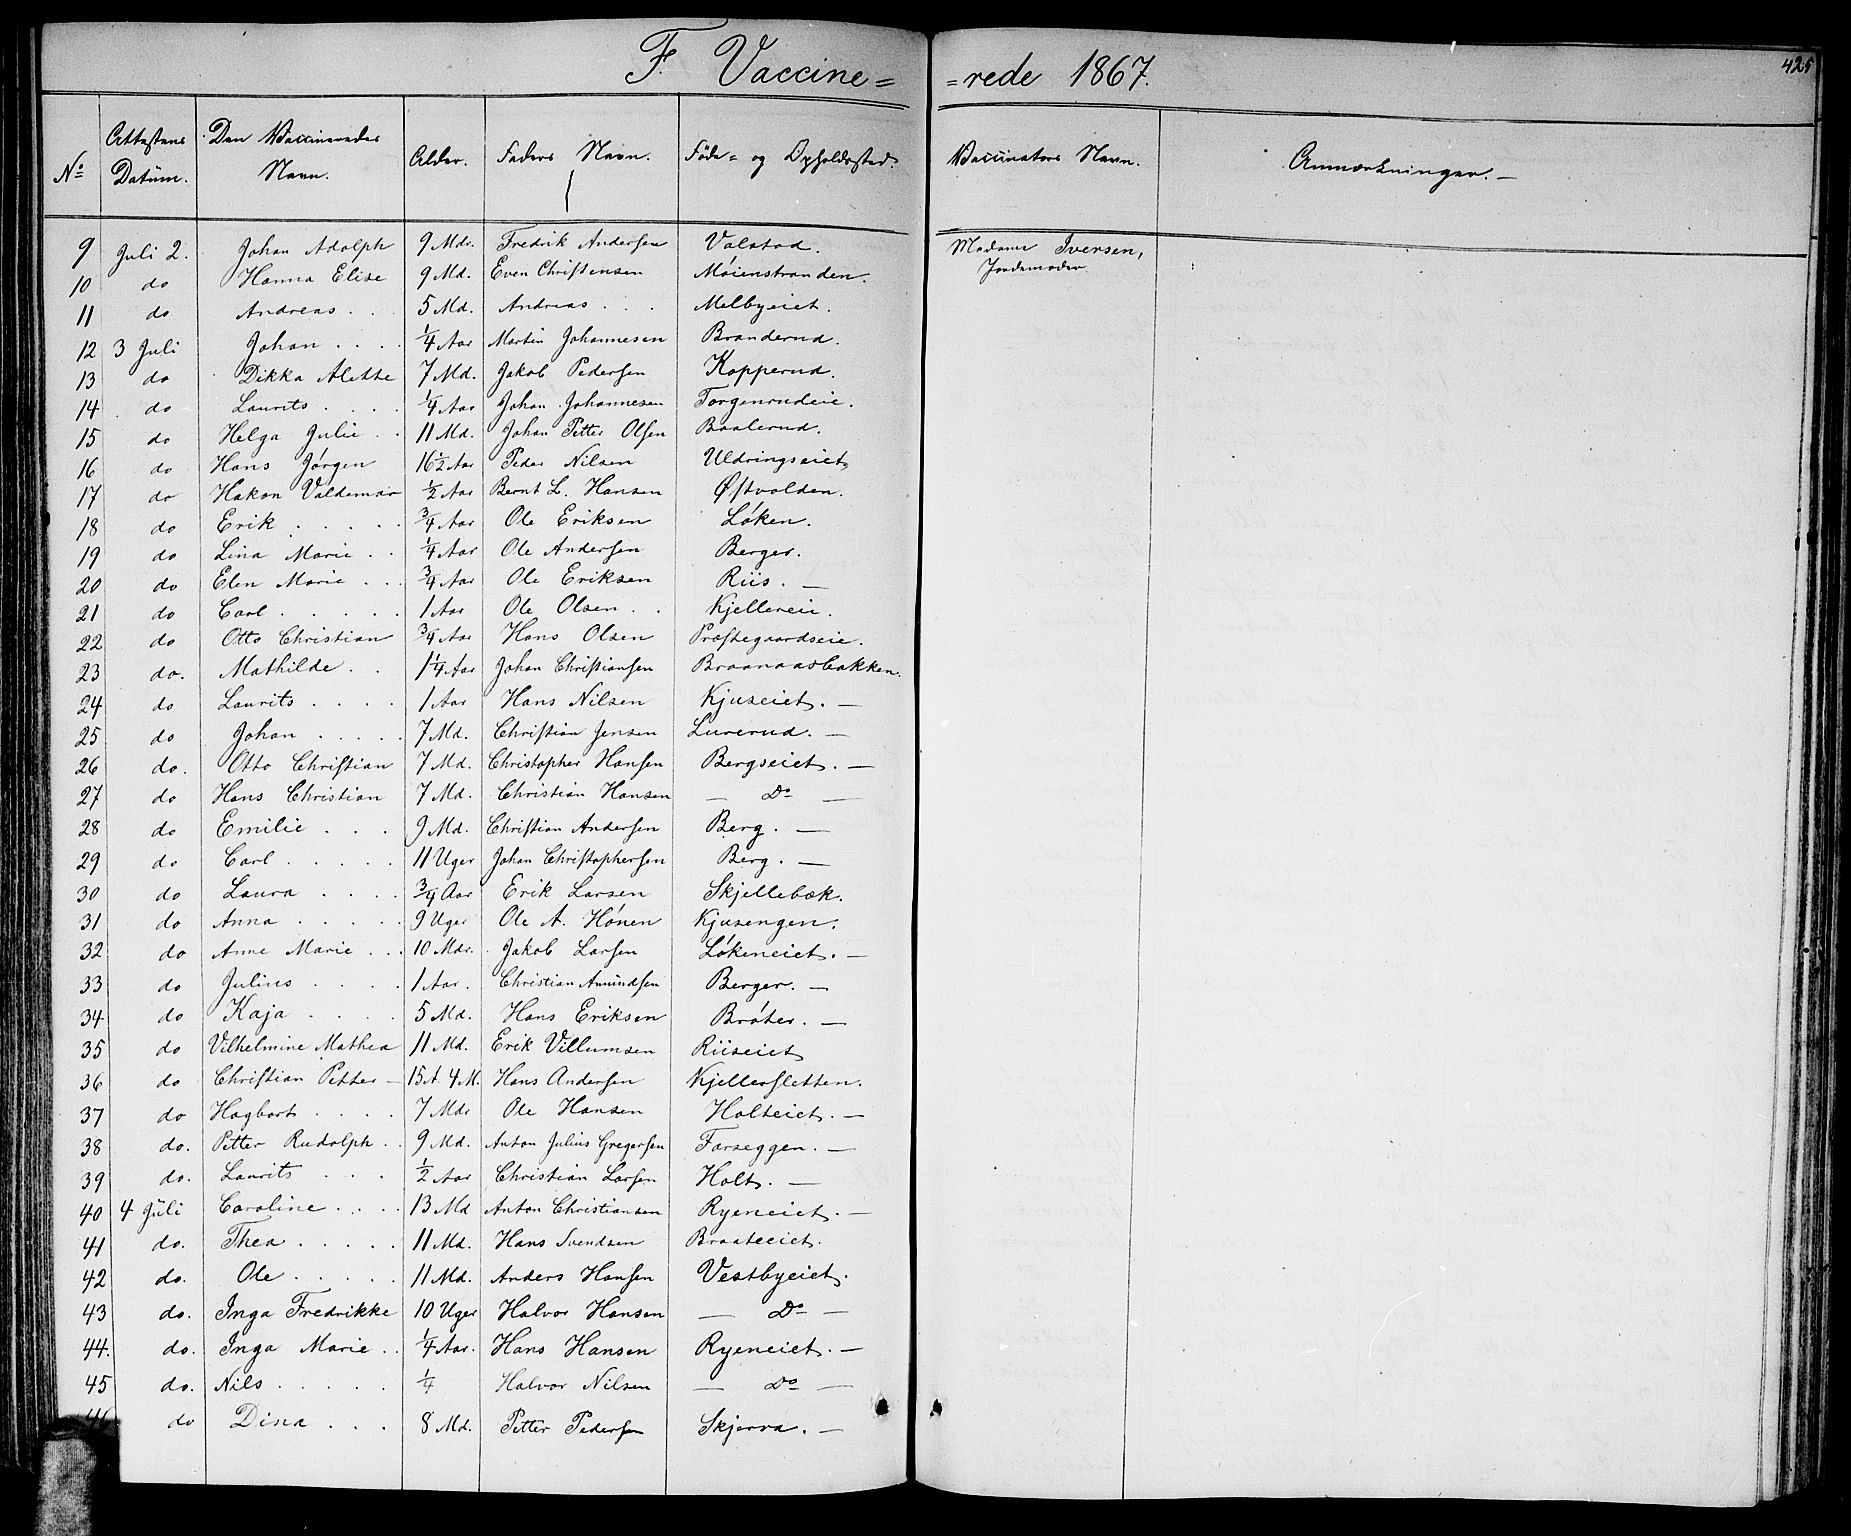 F. Vaccine= =rede 1867. 425
No Attestens Datum. Den Vaccineredes Navn. Alder. Faders Navn. Føde= og Opholdssted. Vaccinators Navn. Anmærkninger. —
9 Juli 2. Johan Adolph 9 Mdr. Fredrik Andersen Valstad. Madame Iversen,
Jordemoder
10 do Hanna Elise 9 Md. Even Christensen Møienstranden.
11 do Andreas . . 5 Md. Andreas . . . Melbyeiet.
12 3 Juli Johan . . . . 1/4 Aar Martin Johannesen Branderud.
13 do Dikka Alette 7 Md. Jakob Pedersen Kopperud.
14 do Laurits . . . . 1/4 Aar Johan Johannesen Torgenrudeie.
15 do Helga Julie . . 11 Md. Johan Petter Olsen Baalerud.
16 do Hans Jørgen 16 1/2 Aar Peder Nilsen Uldringseiet
17 do Hakon Valdemar 1/2 Aar Bernt L. Hansen Østvolden.
18 do Erik . . . . . 3/4 Aar Ole Eriksen Løken.
19 do Lina Marie . . 1/4 Aar Ole Andersen Berger.
20 do Elen Marie . . . 3/4 Aar Ole Eriksen Riis. —
21 do Carl . . . . . 1 Aar Ole Olsen . . Kjellereie.
22 do Otto Christian 3/4 Aar Hans Olsen Præstegaardseie.
23 do. Mathilde . . 1 1/4 Aar Johan Christiansen Braanaasbakken.
24 do Laurits . . . . 1 Aar Hans Nilsen Kjuseiet. —
25 do Johan . . . . . 7 Md. Christian Jensen Lurerud. —
26 do. Otto Christian 7 Md. Christopher Hansen Bergseiet. —
27 do Hans Christian 7 Md. Christian Hansen — Do —
28 do Emilie . . . 9 Md. Christian Andersen Berg. —
29 do Carl . . . . . 11 Uger Johan Christophersen Berg. —
30 do Laura . . . . 3/4 Aar Erik Larsen Skjellebæk.
31 do Anna . . . . . 9 Uger Ole A. Hønen Kjusengen.
32 do Anne Marie . . . 10 Mdr. Jakob Larsen Løkeneiet. —
33 do Julius . . . . 1 Aar. Christian Amundsen Berger. —
34 do Kaja . . . . 5 Md. Hans Eriksen Brøter. —
35 do Vilhelmine Mathea 11 Md. Erik Villumsen Riiseiet
36 do Christian Petter — 15 A 4 M. Hans Andersen Kjellersletten.
37 do Hagbart . . . . 7 Mdr Ole Hansen Holteiet. —
38 do. Petter Rudolph . . 9 Md. Anton Julius Gregersen Farseggen. —
39 do. Laurits . . . 1/2 Aar Christian Larsen Holt. —
40 4 Juli Caroline . . . . 13 Md Anton Christiansen Ryeneiet. —
41 do. Thea . . . . . 11 Md. Hans Svendsen Braateeiet.
42 do. Ole . . . . . 11 Md. Anders Hansen Vestbyeiet.
43 do. Inga Fredrikke 10 Uger Halvor Hansen — Do —
44. do. Inga Marie . . 1/4 Aar. Hans Hansen Ryeneiet. —
45 do. Nils . . . . . 1/4 Halvor Nilsen — Do —
46 do Dina . . . 8 Md. Petter Pedersen Skjerva. —